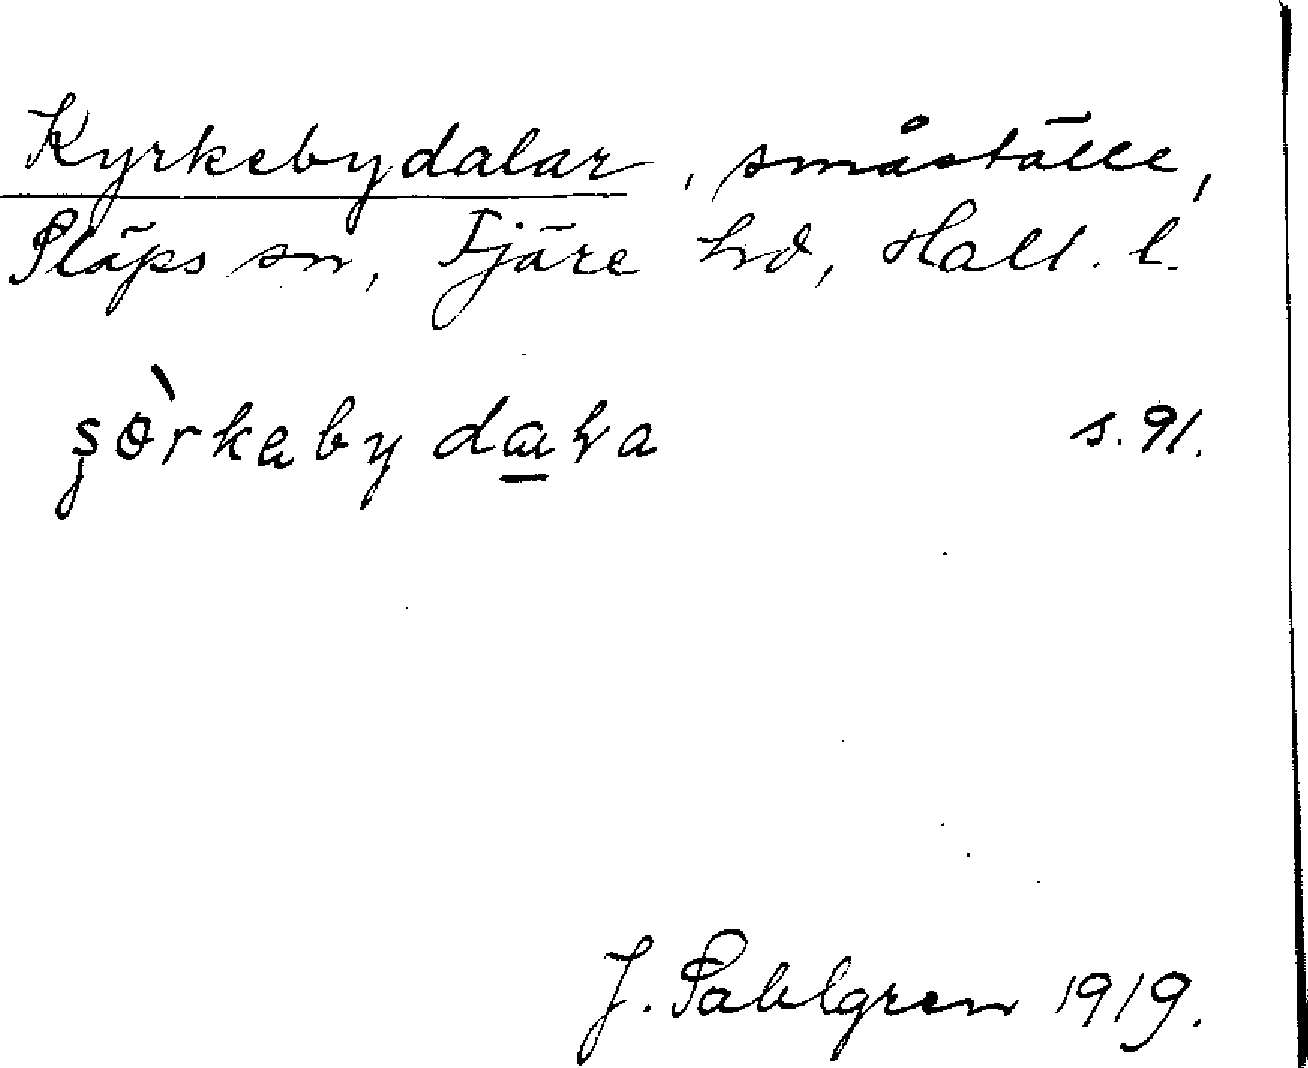 Kyrkebydalar, småställe,
Släps sn, Fjäre hd, Hall. l.
şòrkabydaɫa s. 91.
J. Sahlgren 1919.